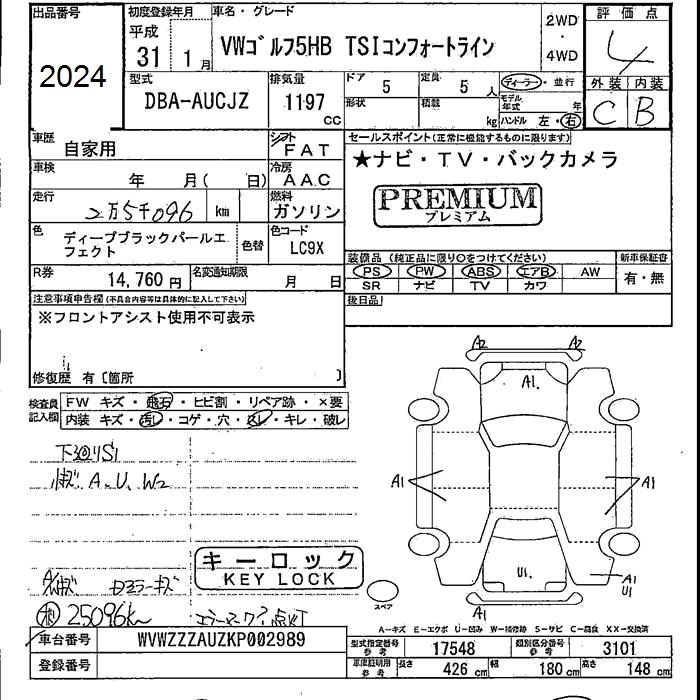 出品番号
2024
初度登録年月
平成
31 1月
車名・グレード
VWゴルフ5HB TSIコンフォートライン
2WD
・
4WD
評価点
4
外装 内装
C B
型式
DBA-AUCJZ
排気量
1197
CC
ドア
5
定員
5人
形状
積載
kg
ディーラー・並行
モデル年式 年
ハンドル 左・右
車歴
自家用
シフト
FAT
車検
年 月( 日)
冷房
AAC
走行
2万5千096 km
燃料
ガソリン
色
ディープブラックパールエフェクト
色替
色コード
LC9X
R券
14,760円
名変通知期限
月 日
セールスポイント(正常に機能するものに限ります)
★ナビ・TV・バックカメラ
PREMIUM
プレミアム
装備品(純正品に限り○をつけてください)
PS PW ABS エアB AW
SR ナビ TV カワ
新車保証書
有・無
後日品
注意事項申告欄(不具合内容等は具体的に記入して下さい)
※フロントアシスト使用不可表示
修復歴 有〔箇所 〕
検査員記入欄
FW キズ・飛石・ヒビ割・リペア跡・×要
内装 キズ・汚レ・コゲ・穴・スレ・キレ・破レ
下廻りS1
A、U、W2
キーロック
KEY LOCK
ドアミラーキズ
25096km
エラーマーク
点灯
A2 A2
A1.
A1 A1
U1.
A1
U1
A1
スペア
A-キズ E-エクボ U-凹み W-補修跡 S-サビ C-腐食 XX-交換済
車台番号
WVWZZZAUZKP002989
登録番号
型式指定番号
参考
17548
類別区分番号
参考
3101
車庫証明用
参考
長さ
426 cm
幅
180 cm
高さ
148 cm